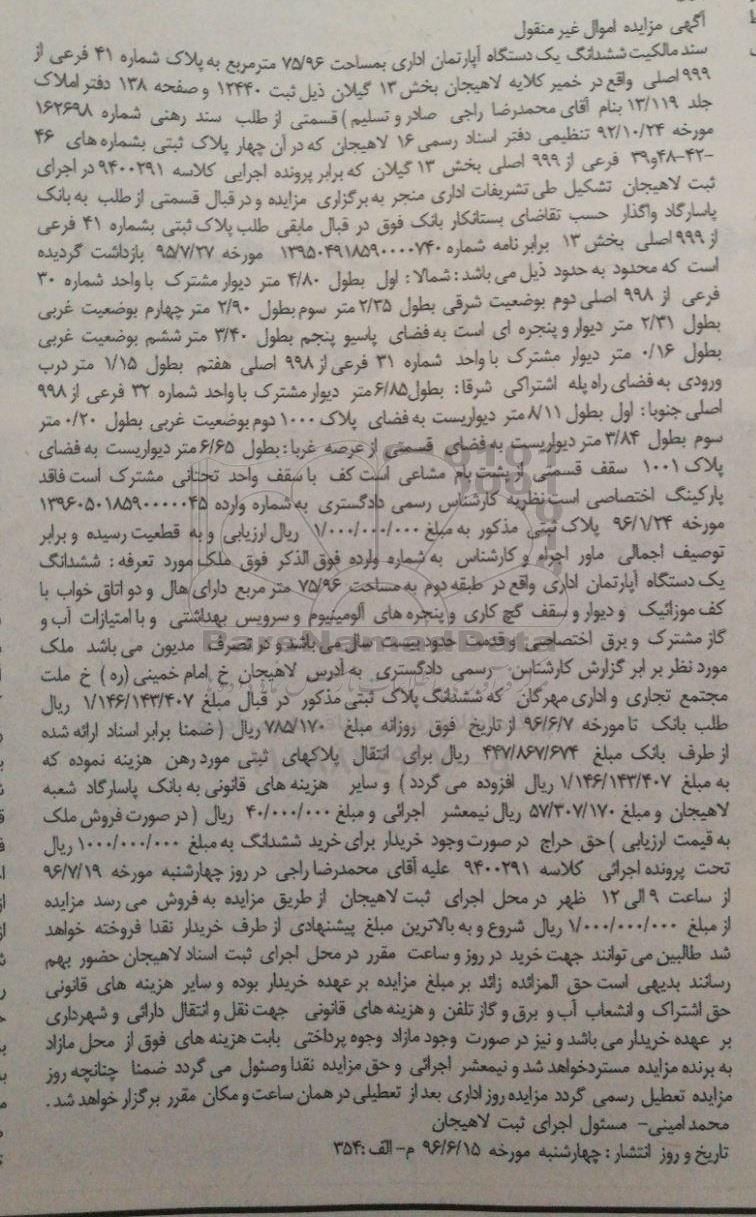 آگهی مزایده اموال غیر منقول
سند مالکیت ششدانگ یک دستگاه آپارتمان اداری بمساحت ۷۵/۹۶ مترمربع به پلاک شماره ۴۱ فرعی از
۹۹۹ اصلی واقع در خمیر کلایه لاهیجان بخش ۱۳ گیلان ذیل ثبت ۱۲۴۴۰ و صفحه ۱۳۸ دفتر املاک
جلد ۱۳/۱۱۹ بنام آقای محمدرضا راجی صادر و تسلیم ) قسمتی از طلب سند رهنی شماره ۱۶۲۶۹۸
مورخه ۹۲/۱۰/۲۴ تنظیمی دفتر اسناد رسمی ۱۶ لاهیجان که در آن چهار پلاک ثبتی بشماره های ۴۶
-۴۲-۴۸و۳۹ فرعی از ۹۹۹ اصلی بخش ۱۳ گیلان که برابر پرونده اجرایی کلاسه ۹۴۰۰۲۹۱ در اجرای
ثبت لاهیجان تشکیل طی تشریفات اداری منجر به برگزاری مزایده و در قبال قسمتی از طلب به بانک
پاسارگاد واگذار حسب تقاضای بستانکار بانک فوق در قبال مابقی طلب پلاک ثبتی بشماره ۴۱ فرعی
از ۹۹۹ اصلی بخش ۱۳ برابر نامه شماره ۱۳۹۵۰۴۹۱۸۵۹۰۰۰۰۷۴۰ مورخه ۹۵/۷/۲۷ بازداشت گردیده
است که محدود به حدود ذیل می باشد : شمالا : اول بطول ۴/۸۰ متر دیوار مشترک با واحد شماره ۳۰
فرعی از ۹۹۸ اصلی دوم بوضعیت شرقی بطول ۲/۳۵ متر سوم بطول ۲/۹۰ متر چهارم بوضعیت غربی
بطول ۲/۳۱ متر دیوار و پنجره ای است به فضای پاسیو پنجم بطول ۳/۴۰ متر ششم بوضعیت غربی
بطول ۰/۱۶ متر دیوار مشترک با واحد شماره ۳۱ فرعی از ۹۹۸ اصلی هفتم بطول ۱/۱۵ متر درب
ورودی به فضای راه پله اشتراکی شرقا : بطول ۶/۸۵ متر دیوار مشترک با واحد شماره ۳۲ فرعی از ۹۹۸
اصلی جنوبا : اول بطول ۸/۱۱ متر دیواریست به فضای پلاک ۱۰۰۰ دوم بوضعیت غربی بطول ۰/۲۰ متر
سوم بطول ۳/۸۴ متر دیواریست به فضای قسمتی از عرصه غربا : بطول ۶/۶۵ متر دیواریست به فضای
پلاک ۱۰۰۱ سقف قسمتی از پشت بام مشاعی است کف با سقف واحد تحتانی مشترک است فاقد
پارکینگ اختصاصی است نظریه کارشناس رسمی دادگستری به شماره وارده ۱۳۹۶۰۵۰۱۸۵۹۰۰۰۰۰۴۵
مورخه ۹۶/۱/۲۴ پلاک ثبتی مذکور به مبلغ ۱/۰۰۰/۰۰۰/۰۰۰ ریال ارزیابی و به قطعیت رسیده و برابر
توصیف اجمالی ماور اجراء و کارشناس به شماره وارده فوق الذکر فوق ملک مورد تعرفه : ششدانگ
یک دستگاه آپارتمان اداری واقع در طبقه دوم به مساحت ۷۵/۹۶ متر مربع دارای هال و دو اتاق خواب با
کف موزائیک و دیوار و سقف گچ کاری و پنجره های آلومینیوم و سرویس بهداشتی و با امتیازات آب و
گاز مشترک و برق اختصاصی و قدمت حدود بیست سال می باشد و در تصرف مدیون می باشد ملک
مورد نظر بر ابر گزارش کارشناس رسمی دادگستری به آدرس لاهیجان خ امام خمینی (ره ) خ ملت
مجتمع تجاری و اداری مهرگان که ششدانگ پلاک ثبتی مذکور در قبال مبلغ ۱/۱۴۶/۱۴۳/۴۰۷ ریال
طلب بانک تا مورخه ۹۶/۶/۷ از تاریخ فوق روزانه مبلغ ۷۸۵/۱۷۰ ریال ( ضمنا برابر اسناد ارائه شده
از طرف بانک مبلغ ۴۴۷/۸۶۷/۶۷۴ ریال برای انتقال پلاکهای ثبتی مورد رهن هزینه نموده که
به مبلغ ۱/۱۴۶/۱۴۳/۴۰۷ ریال افزوده می گردد ) و سایر هزینه های قانونی به بانک پاسارگاد شعبه
لاهیجان و مبلغ ۵۷/۳۰۷/۱۷۰ ریال نیمعشر اجرائی و مبلغ ۴۰/۰۰۰/۰۰۰ ریال ( در صورت فروش ملک
به قیمت ارزیابی ) حق حراج در صورت وجود خریدار برای خرید ششدانگ به مبلغ ۱۰۰۰/۰۰۰/۰۰۰ ریال
تحت پرونده اجرائی کلاسه ۹۴۰۰۲۹۱ علیه آقای محمدرضا راجی در روز چهارشنبه مورخه ۹۶/۷/۱۹
از ساعت ۹ الی ۱۲ ظهر در محل اجرای ثبت لاهیجان از طریق مزایده به فروش می رسد مزایده
از مبلغ ۱/۰۰۰/۰۰۰/۰۰۰ ریال شروع و به بالاترین مبلغ پیشنهادی از طرف خریدار نقدا فروخته خواهد
شد طالبین می توانند جهت خرید در روز و ساعت مقرر در محل اجرای ثبت اسناد لاهیجان حضور بهم
رسانند بدیهی است حق المزائده زائد بر مبلغ مزایده بر عهده خریدار بوده و سایر هزینه های قانونی
حق اشتراک و انشعاب آب و برق و گاز تلفن و هزینه های قانونی جهت نقل و انتقال دارائی و شهرداری
بر عهده خریدار می باشد و نیز در صورت وجود مازاد وجوه پرداختی بابت هزینه های فوق از محل مازاد
به برنده مزایده مسترد خواهد شد و نیمعشر اجرائی و حق مزایده نقدا وصئول می گردد ضمنا چنانچه روز
مزایده تعطیل رسمی گردد مزایده روز اداری بعد از تعطیلی در همان ساعت و مکان مقرر برگزار خواهد شد .
محمد امینی- مسئول اجرای ثبت لاهیجان
تاریخ و روز انتشار : چهارشنبه مورخه ۹۶/۶/۱۵ م-الف :۳۵۴